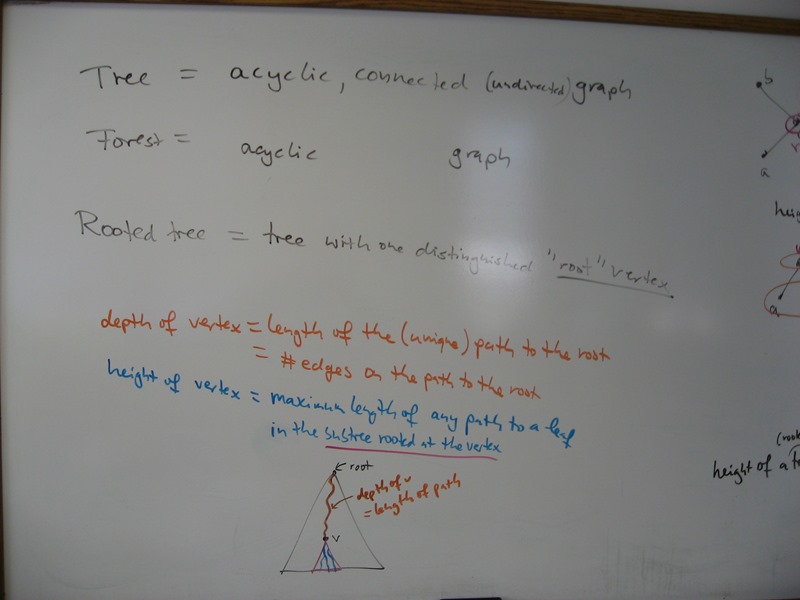 Tree = acyclic, connected (undirected) graph
Forest = acyclic graph
Rooted tree = tree with one distinguished "root" vertex
depth of vertex = length of the (unique) path to the root
= # edges on the path to the root
height of vertex = maximum length of any path to a leaf
in the subtree rooted at the vertex
root
depth of v
= length of path
v
b
a
r
a
height of a